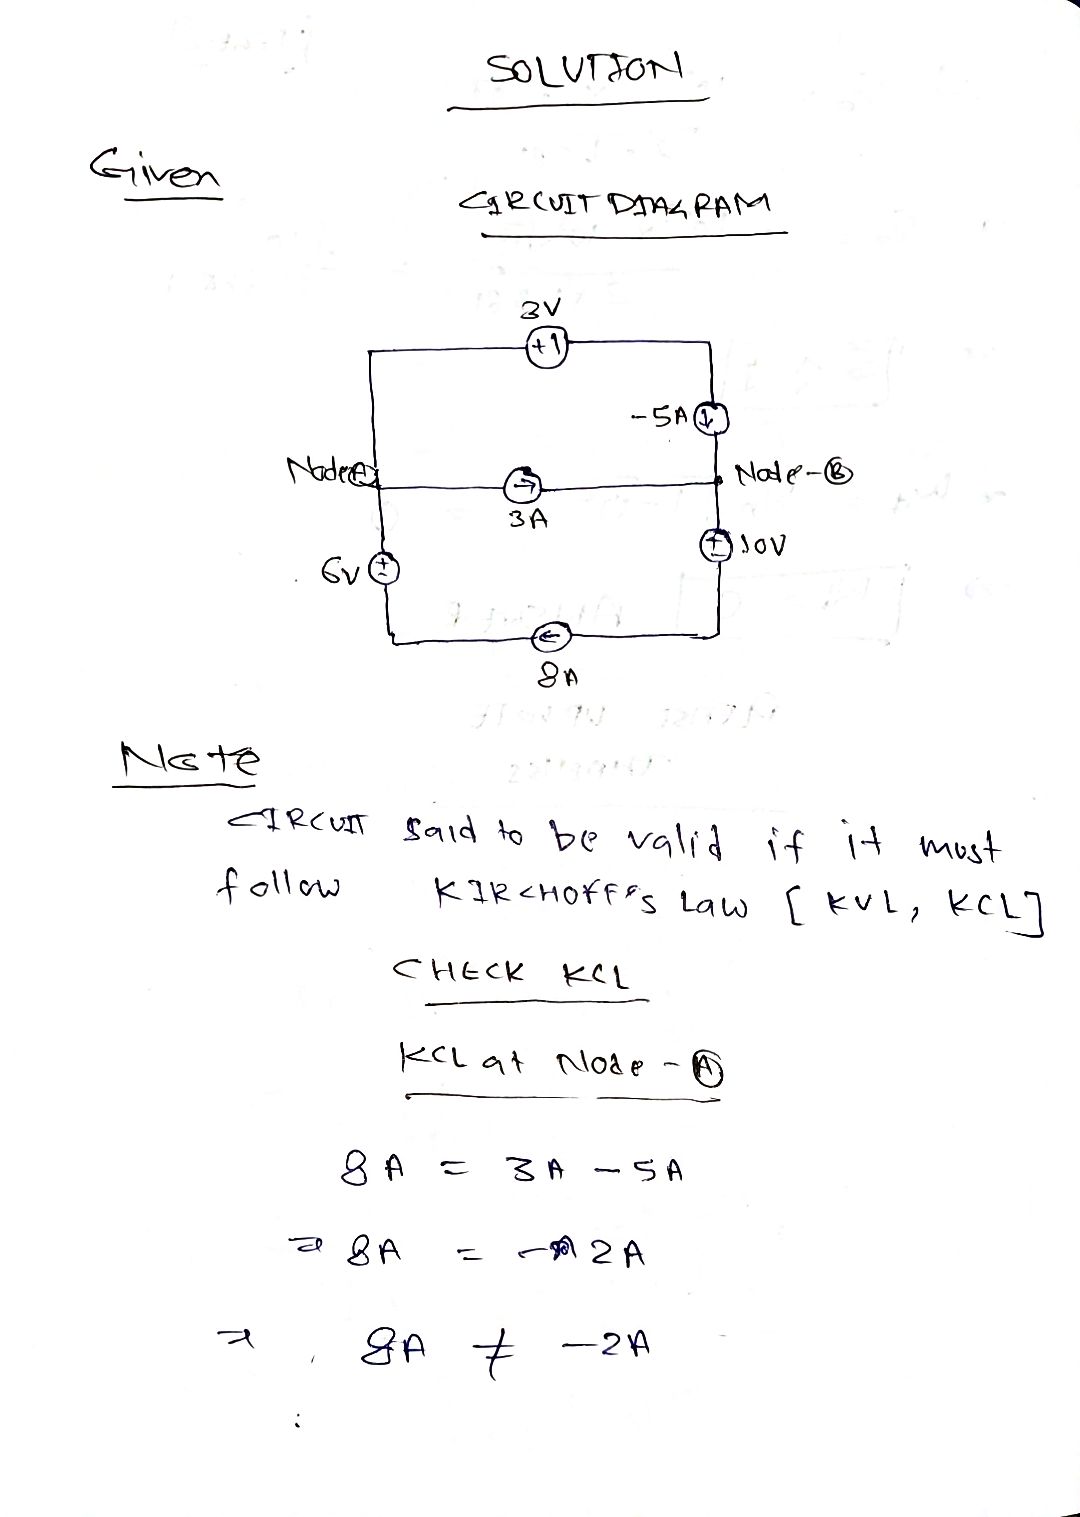 SOLUTION
Given
CIRCUIT DIAGRAM
3V
-5A
Node-A
Node-B
3A
10V
6V
8A
Note
CIRCUIT said to be valid if it must
follow KIRCHOFF's Law [KVL, KCL]
CHECK KCL
KCL at Node - A
8A = 3A - 5A
⇒ 8A = - 2A
⇒ 8A ≠ -2A